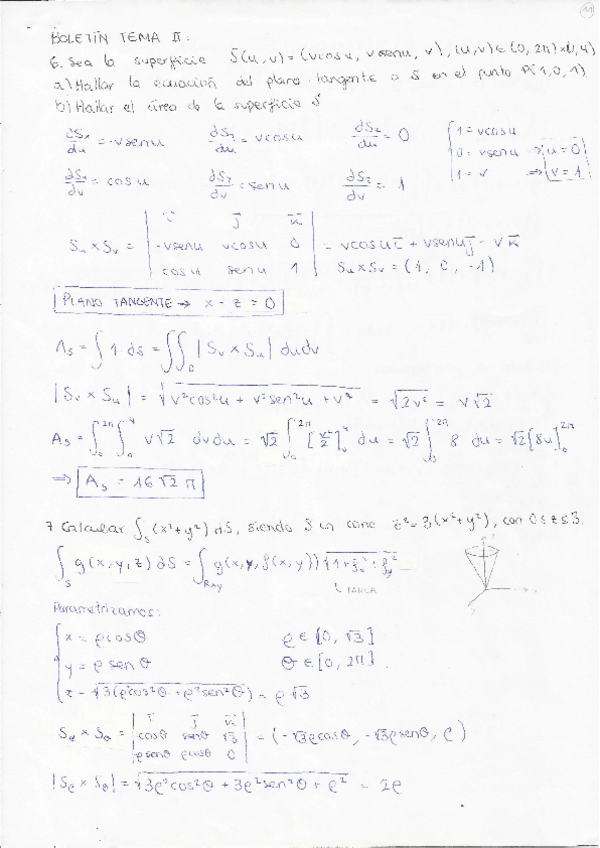 11
BOLETÍN TEMA II:
6. Sea la superficie S(u,v) = (vcosu, vsenu, v), (u,v) ∈ (0, 2π) × (0, 4)
a) Hallar la ecuación del plano tangente a S en el punto P(1,0,1)
b) Hallar el área de la superficie S
dS₁/du = -vsenu dS₂/du = vcosu dS₃/du = 0
dS₁/dv = cosu dS₂/dv = senu dS₃/dv = 1
1 = vcosu
0 = vsenu → u = 0
1 = v → v = 1
Su × Sv = | i j k ; -vsenu vcosu 0 ; cosu senu 1 | = vcosu i + vsenu j - v k
Su × Sv = (1, 0, -1)
PLANO TANGENTE → x - z = 0
As = ∫ 1 ds = ∫∫ |Sv × Su| du dv
|Sv × Su| = √(v²cos²u + v²sen²u + v²) = √(2v²) = v√2
As = ∫₀^2π ∫₀^4 v√2 dv du = √2 ∫₀^2π [v²/2]₀^4 du = √2 ∫₀^2π 8 du = √2 [8u]₀^2π
⇒ As = 16√2 π
7 Calcular ∫s (x²+y²) dS, siendo S un cono z² = 3(x²+y²), con 0≤z≤3.
∫s g(x,y,z) dS = ∫Rxy g(x,y,f(x,y)) √(1+fx²+fy²)
Parametrizamos:
x = ρcosθ ρ ∈ [0, √3]
y = ρ senθ θ ∈ [0, 2π]
z = √(3(ρ²cos²θ + ρ²sen²θ)) = ρ√3
Sρ × Sθ = | i j k ; cosθ senθ √3 ; ρsenθ ρcosθ 0 | = (-√3ρcosθ, -√3ρsenθ, ρ)
|Sρ × Sθ| = √(3ρ²cos²θ + 3ρ²sen²θ + ρ²) = 2ρ